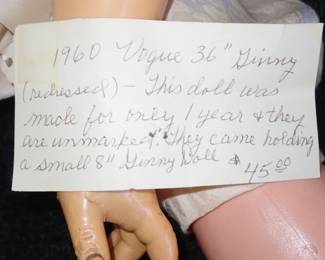 1960 Vogue 36" Ginny
(redressed) - This doll was
made for only 1 year & they
are unmarked. They came holding
a small 8" Ginny Doll $
45.00